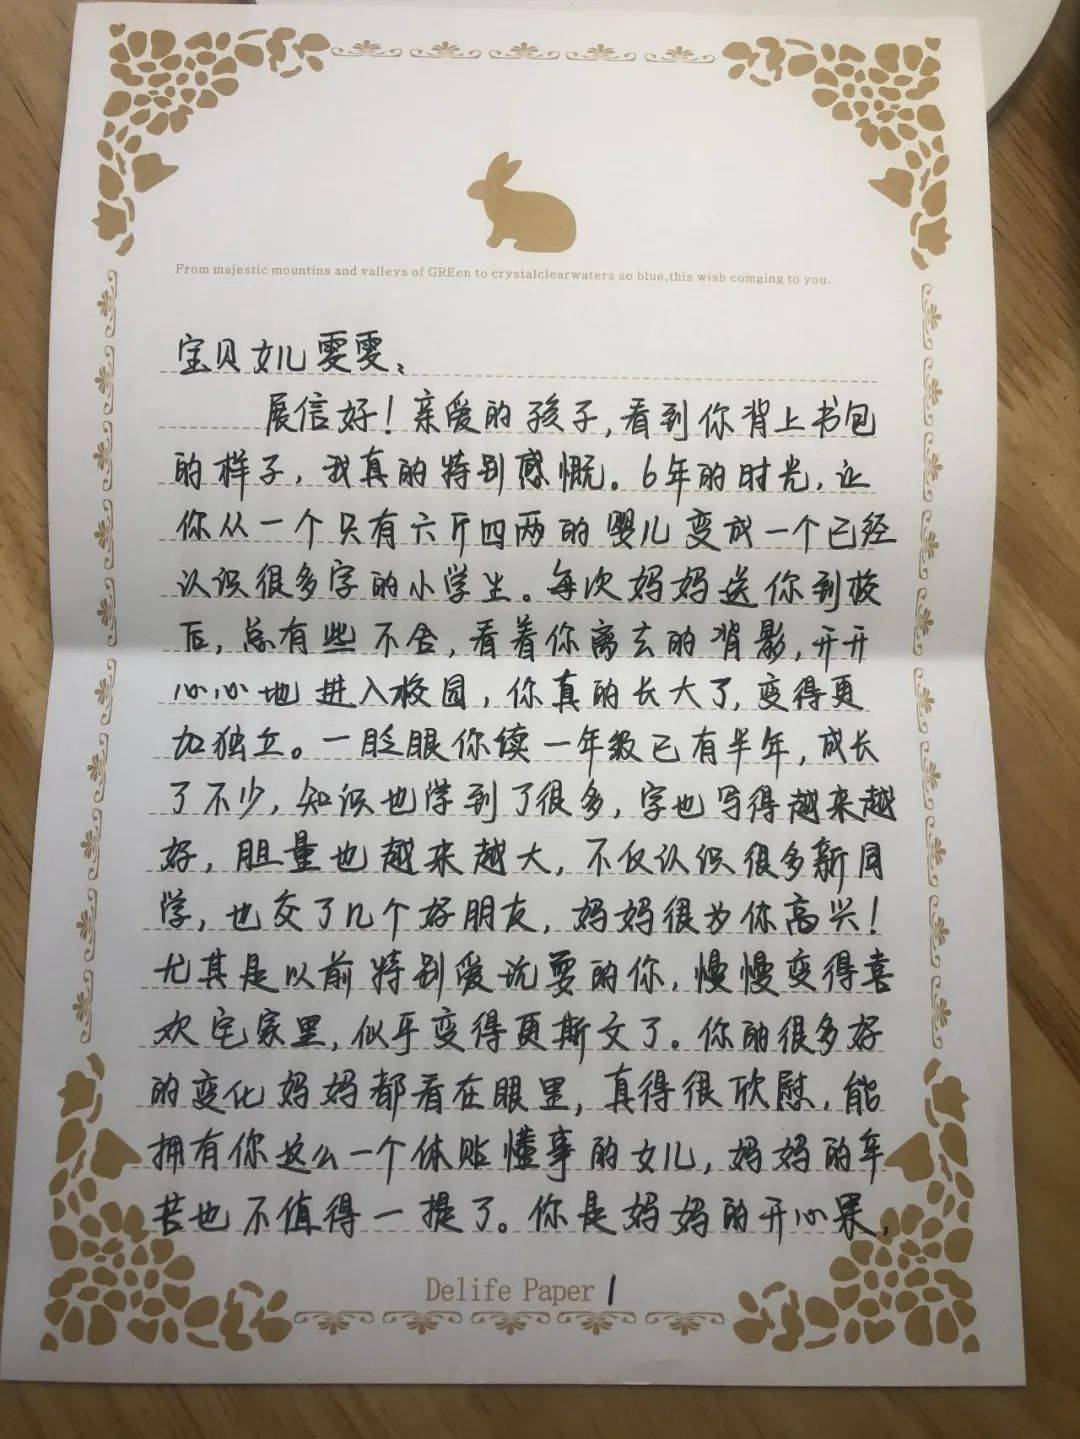 From majestic mountins and valleys of GREen to crystalclearwaters so blue,this wish comging to you.
宝贝女儿雯雯：
展信好！亲爱的孩子，看到你背上书包
的样子，我真的特别感慨。6年的时光，让
你从一个只有六斤四两的婴儿变成一个已经
认识很多字的小学生。每次妈妈送你到校
后，总有些不舍，看着你离去的背影，开开
心心地进入校园，你真的长大了，变得更
加独立。一眨眼你读一年级已有半年，成长
了不少，知识也学到了很多，字也写得越来越
好，胆量也越来越大，不仅认识很多新同
学，也交了几个好朋友，妈妈很为你高兴！
尤其是以前特别爱玩耍的你，慢慢变得喜
欢宅家里，似乎变得更斯文了。你的很多好
的变化妈妈都看在眼里，真得很欣慰，能
拥有你这么一个体贴懂事的女儿，妈妈的辛
苦也不值得一提了。你是妈妈的开心果，
Delife Paper 1